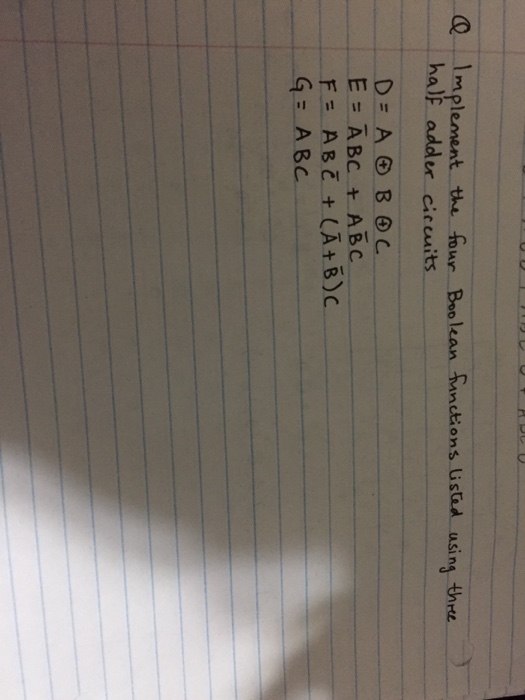 Q Implement the four Boolean functions listed using three
half adder circuits
D = A ⊕ B ⊕ C
E = A̅BC + AB̅C
F = ABC̅ + (A̅+B̅)C
G = ABC